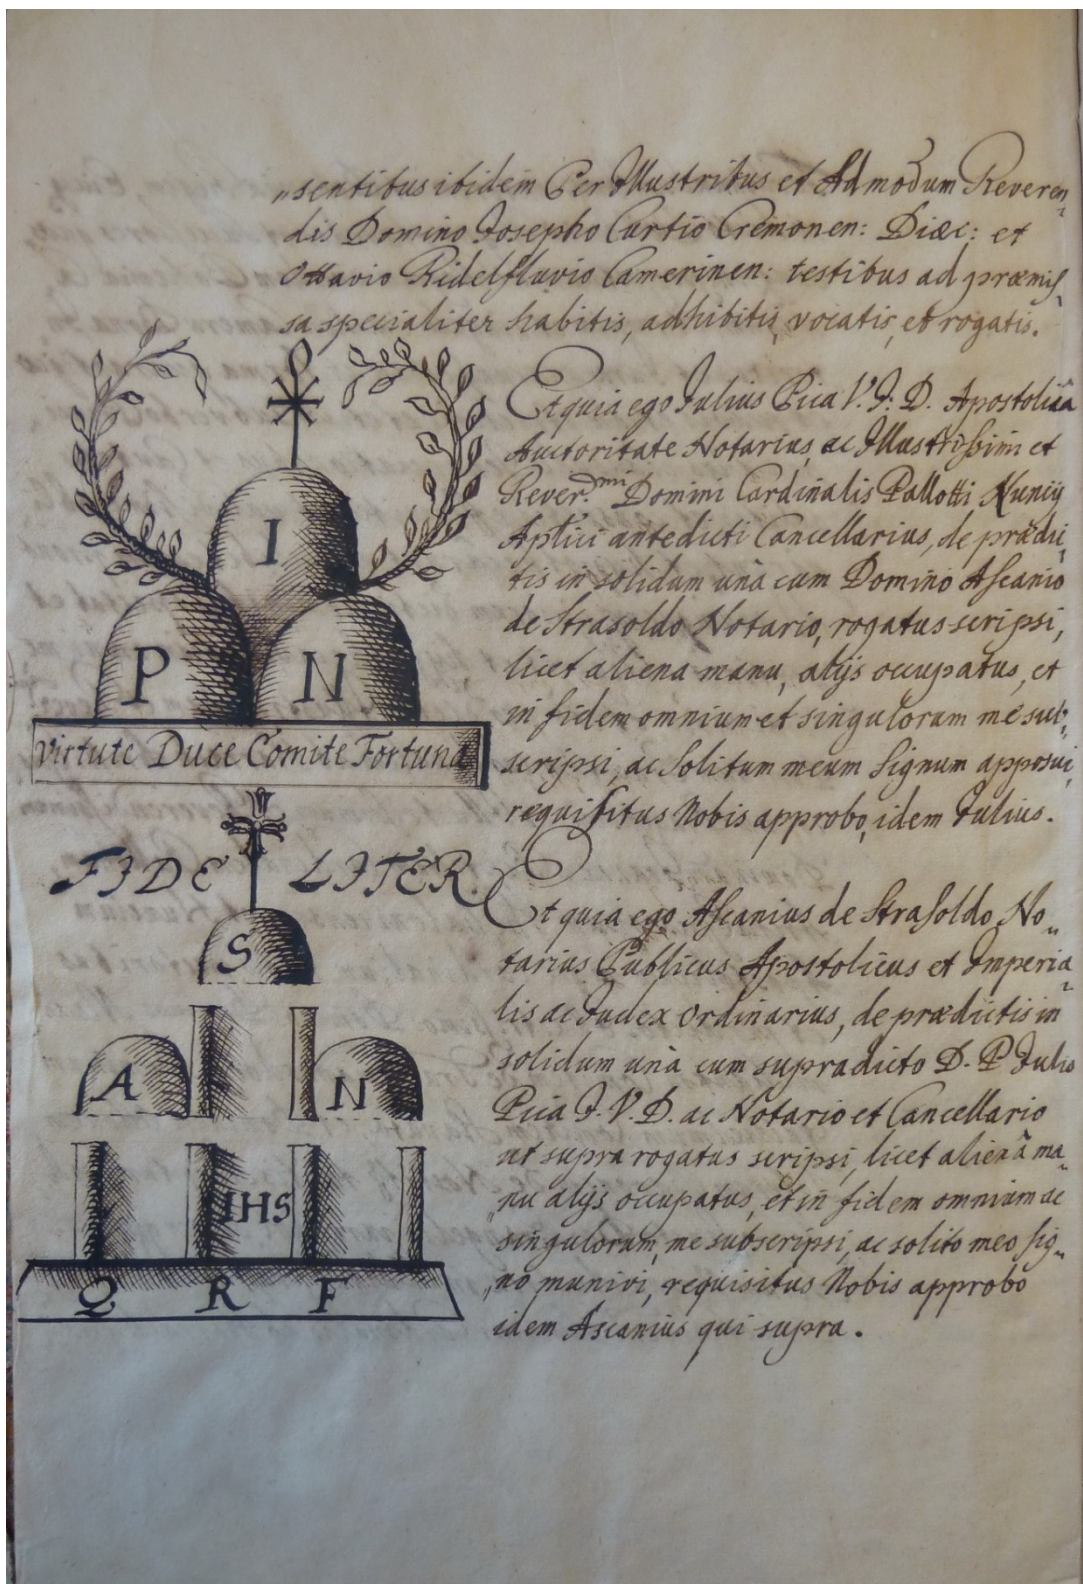 „sentibus ibidem Per Illustribus et Admodum Reveren„
dis Domino Josepho Curtio Cremonen: Diæc: et
Ottavio Ridelfluvio Camerinen: testibus ad præmis„
sa specialiter habitis, adhibitis, vocatis, et rogatis.
Et quia ego Julius Pica V. J. D. Apostolica
Auctoritate Notarius, ac Illustrissimi et
Rever.dmi Domini Cardinalis Pallotti Nuncij
Aplici antedicti Cancellarius, de prædic„
tis in solidum unà cum Domino Ascanio
de Strasoldo Notario, rogatus scripsi,
licet aliena manu, alijs occupatus, et
in fidem omnium et singulorum me sub„
scripsi, ac solitum meum signum apposui,
requisitus Nobis approbo, idem Julius.
I
P N
Virtute Duce Comite Fortuna
FIDE LITER.
S
A N
IHS
Q R F
Et quia ego Ascanius de Strasoldo No„
tarius Publicus Apostolicus et Imperia„
lis ac Judex ordinarius, de prædictis in
solidum unà cum supradicto D. P. Julio
Pica J. V. D. ac Notario et Cancellario
ut supra rogatus scripsi, licet alienâ ma„
„nu alijs occupatus, et in fidem omnium ac
singulorum, me subscripsi, ac solito meo sig„
„no munivi, requisitus Nobis approbo
idem Ascanius qui supra.